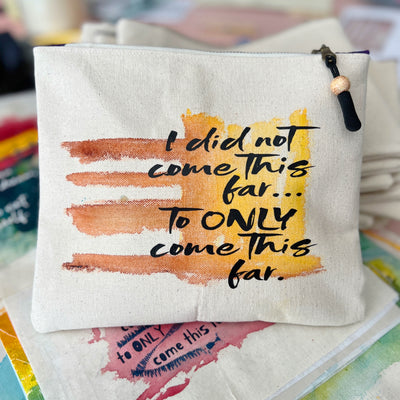 I did not
come this
far...
To ONLY
come this
far.
to ONLY
come this